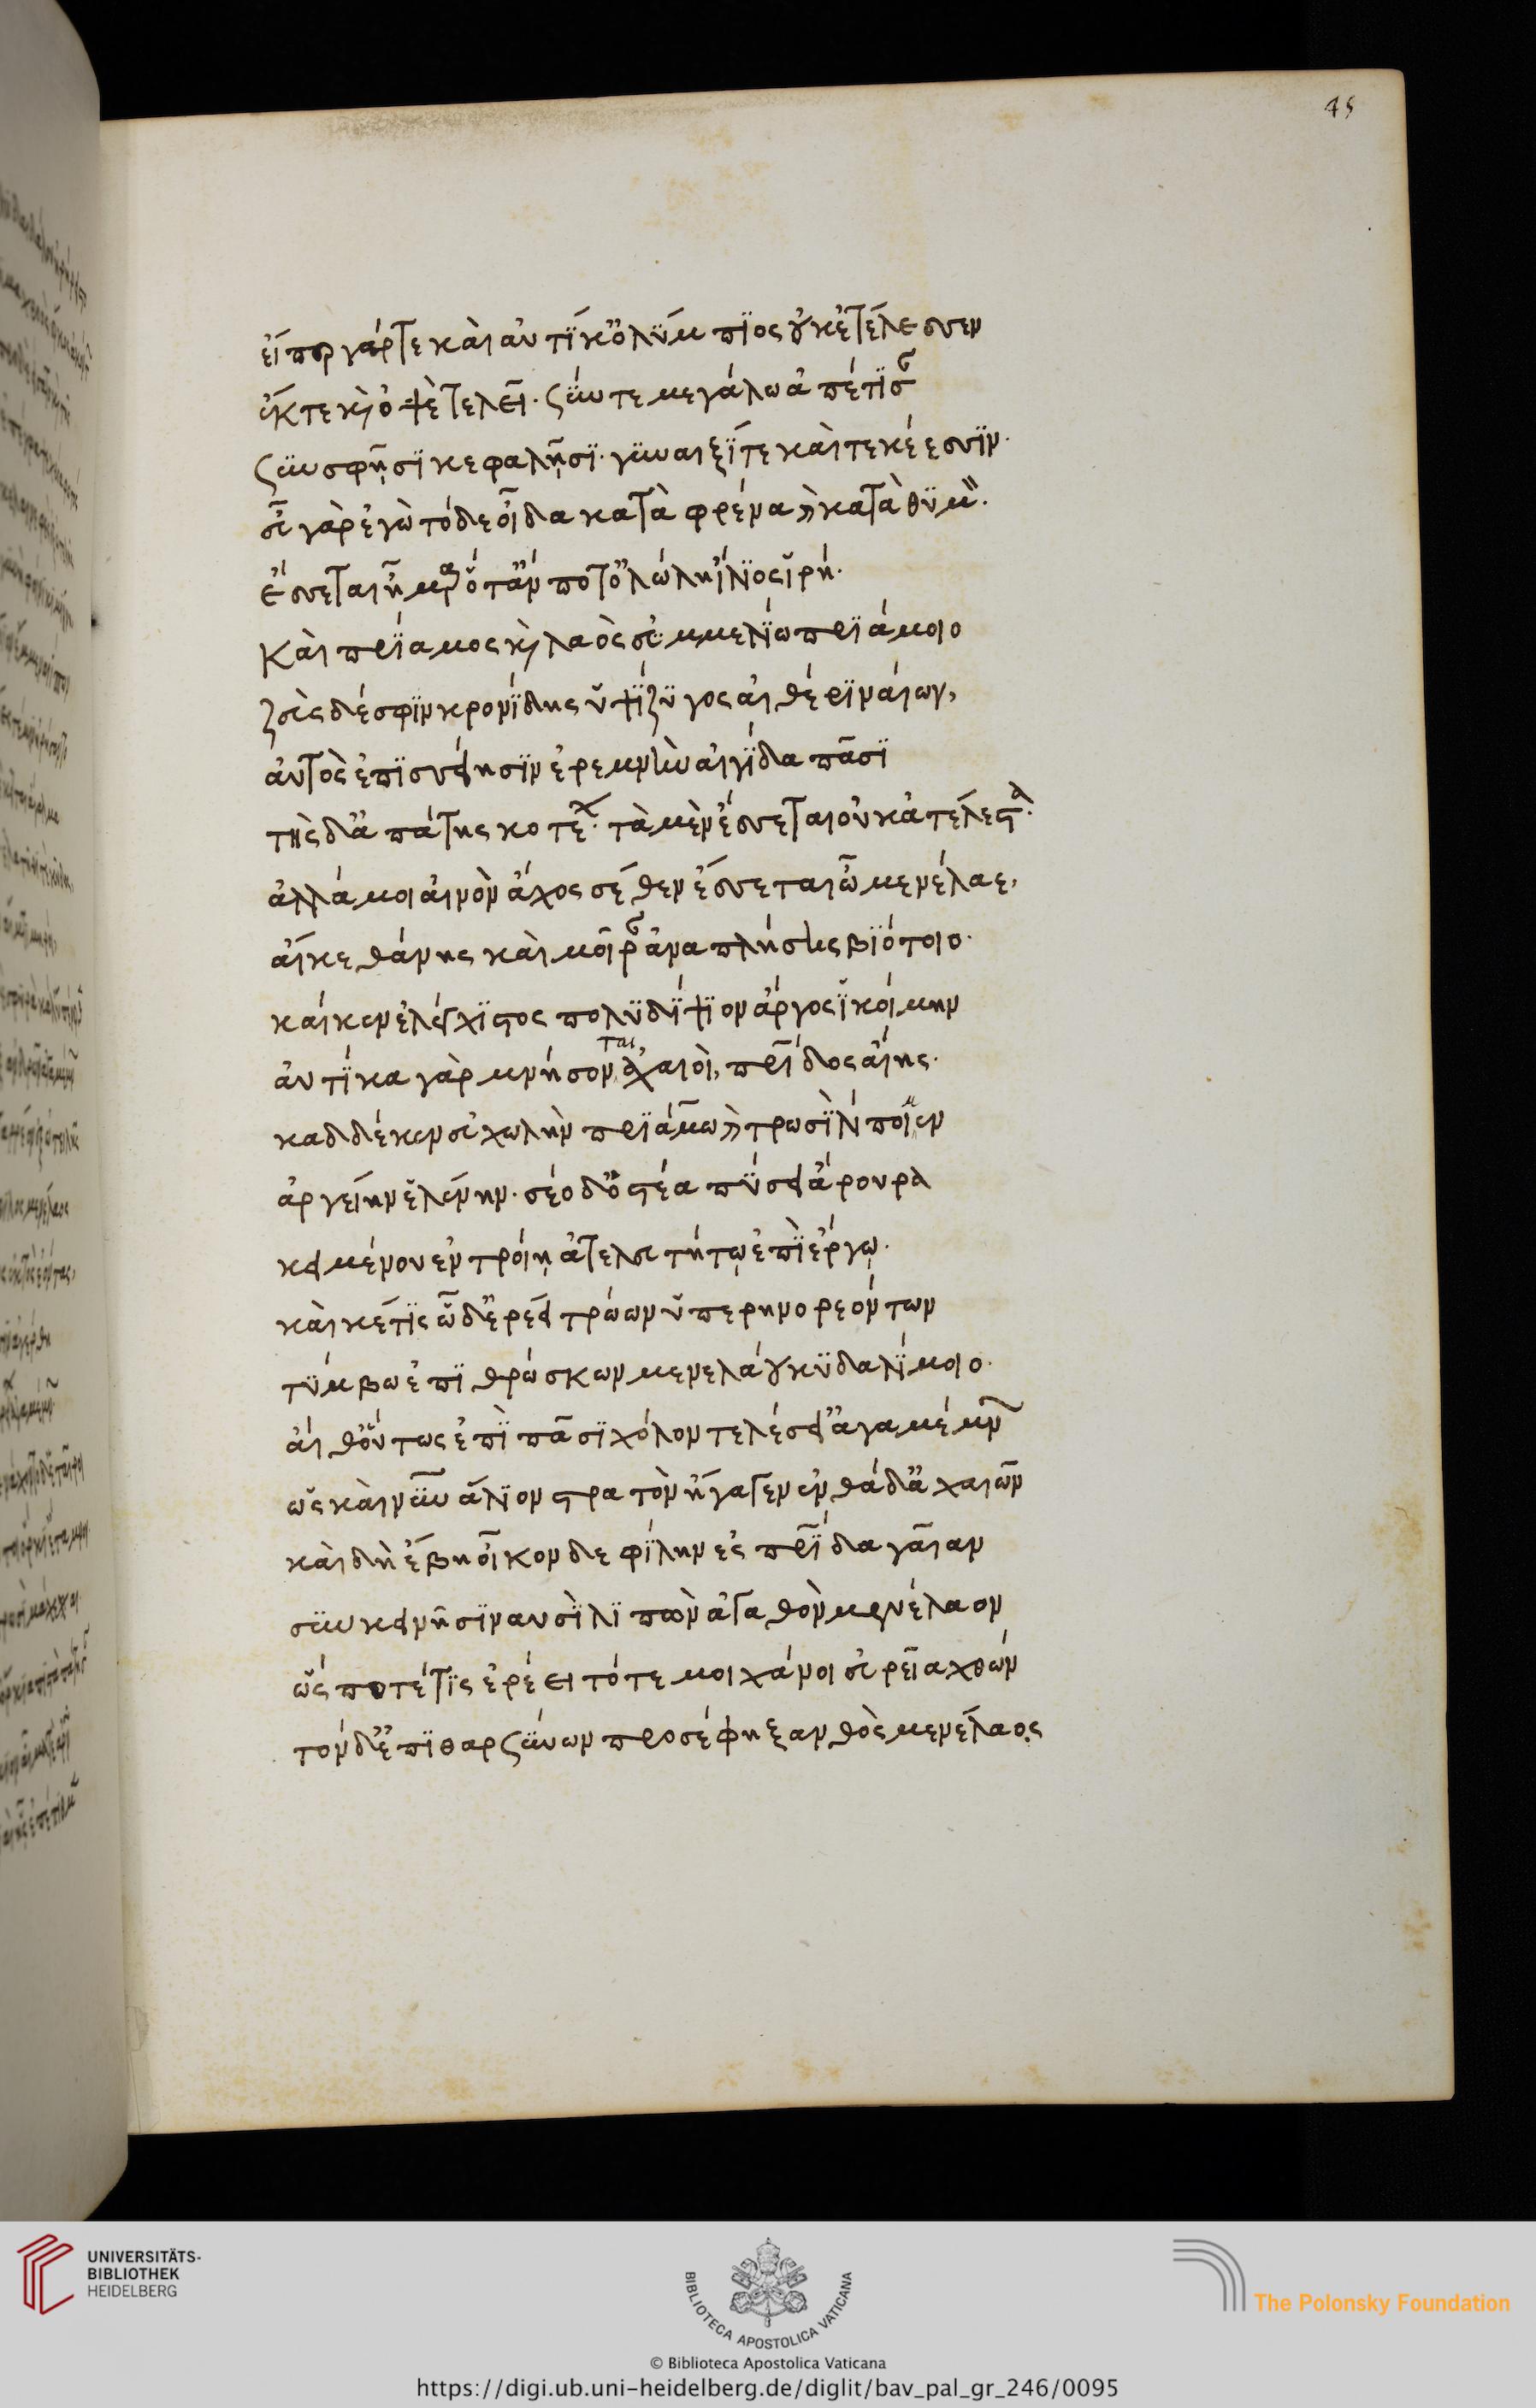 45
εἴπερ γάρ τε καὶ αὐτίκ' ὀλύμπιος οὐκ ἐτέλεσσεν
ἔκ τε καὶ ὀψὲ τελεῖ· σύν τε μεγάλω ἀπέτισαν
σὺν σφῇσι κεφαλῇσι· γυναιξί τε καὶ τεκέεσσιν·
εὖ γὰρ ἐγὼ τόδε οἶδα κατὰ φρένα καὶ κατὰ θυμόν·
ἔσσεται ἦμαρ ὅτ' ἄν ποτ' ὀλώλη ἴλιος ἱρή·
Καὶ πρίαμος καὶ λαὸς ἐϋμμελίω πριάμοιο
ζεὺς δέ σφιν κρονίδης ὑψίζυγος αἰθέρι ναίων,
αὐτὸς ἐπισσείησιν ἐρεμνὴν αἰγίδα πᾶσι
τῆς δ' ἀπάτης κοτέων· τὰ μὲν ἔσσεται οὐκ ἀτέλεστα·
ἀλλά μοι αἰνὸν ἄχος σέθεν ἔσσεται ὦ μενέλαε,
αἴ κε θάνης καὶ μοῖραν ἀναπλήσης βιότοιο·
καί κεν ἐλέγχιστος πολυδίψιον ἄργος ἱκοίμην
αὐτίκα γὰρ μνήσονται ἀχαιοὶ, πατρίδος αἴης·
καδ δέ κεν εὐχωλὴν πριάμω καὶ τρωσὶ λίποιεν
ἀργείην ἑλένην· σέο δ' ὀστέα πύσει ἄρουρα
κειμένου ἐν τροίῃ ἀτελευτήτῳ ἐπὶ ἔργῳ·
καὶ κέ τις ὧδ' ἐρέει τρώων ὑπερηνορεόντων
τύμβω ἐπιθρώσκων μενελάου κυδαλίμοιο·
αἴθ' οὕτως ἐπὶ πᾶσι χόλον τελέσει' ἀγαμέμνων
ὡς καὶ νῦν ἅλιον στρατὸν ἤγαγεν ἐνθάδ' ἀχαιῶν
καὶ δὴ ἔβη οἶκον δε φίλην ἐς πατρίδα γαῖαν
σὺν κεινῆσιν αυσὶ λιπὼν ἀγαθὸν μενέλαον
ὥς ποτέ τις ἐρέει τότε μοι χάνοι εὐρεῖα χθών
τὸν δ' ἐπιθαρσύνων προσέφη ξανθὸς μενέλαος
UNIVERSITÄTS-
BIBLIOTHEK
HEIDELBERG
BIBLIOTECA APOSTOLICA VATICANA
The Polonsky Foundation
© Biblioteca Apostolica Vaticana
https://digi.ub.uni-heidelberg.de/diglit/bav_pal_gr_246/0095